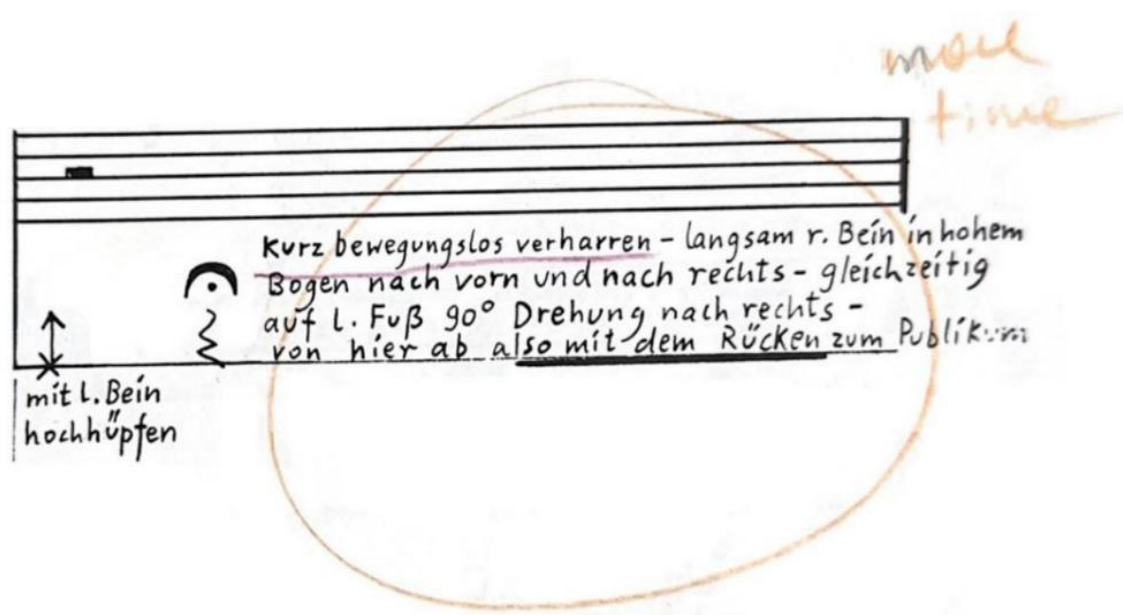 more
time
Kurz bewegungslos verharren - langsam r. Bein in hohem
Bogen nach vorn und nach rechts - gleichzeitig
auf l. Fuß 90° Drehung nach rechts -
von hier ab also mit dem Rücken zum Publikum
mit l. Bein
hochhüpfen